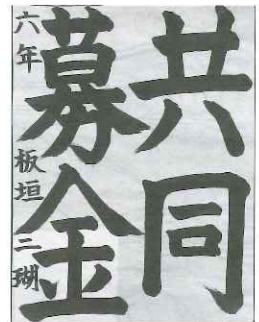 共同
募金
六年 板垣 二瑚